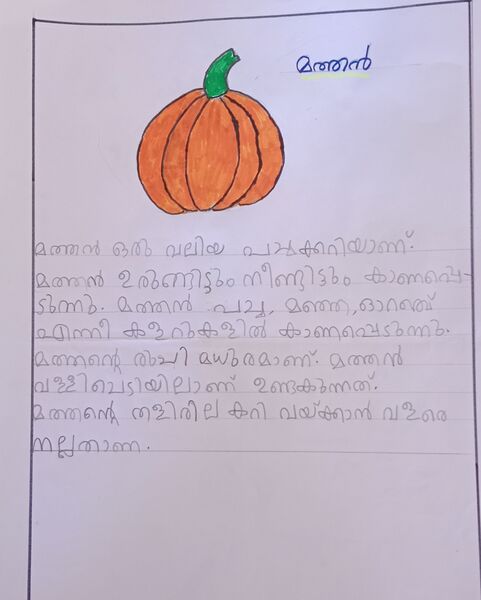 മത്തൻ
മത്തൻ ഒരു വലിയ പച്ചക്കറിയാണ്.
മത്തൻ ഉരുണ്ടിട്ടും നീണ്ടിട്ടും കാണപ്പെ-
ടുന്നു. മത്തൻ പച്ച, മഞ്ഞ, ഓറഞ്ച്
എന്നീ കളറുകളിൽ കാണപ്പെടുന്നു.
മത്തന്റെ രുചി മധുരമാണ്. മത്തൻ
വള്ളിചെടിയിലാണ് ഉണ്ടകുന്നത്.
മത്തന്റെ തളിരില കറി വയ്ക്കാൻ വളരെ
നല്ലതാണ.